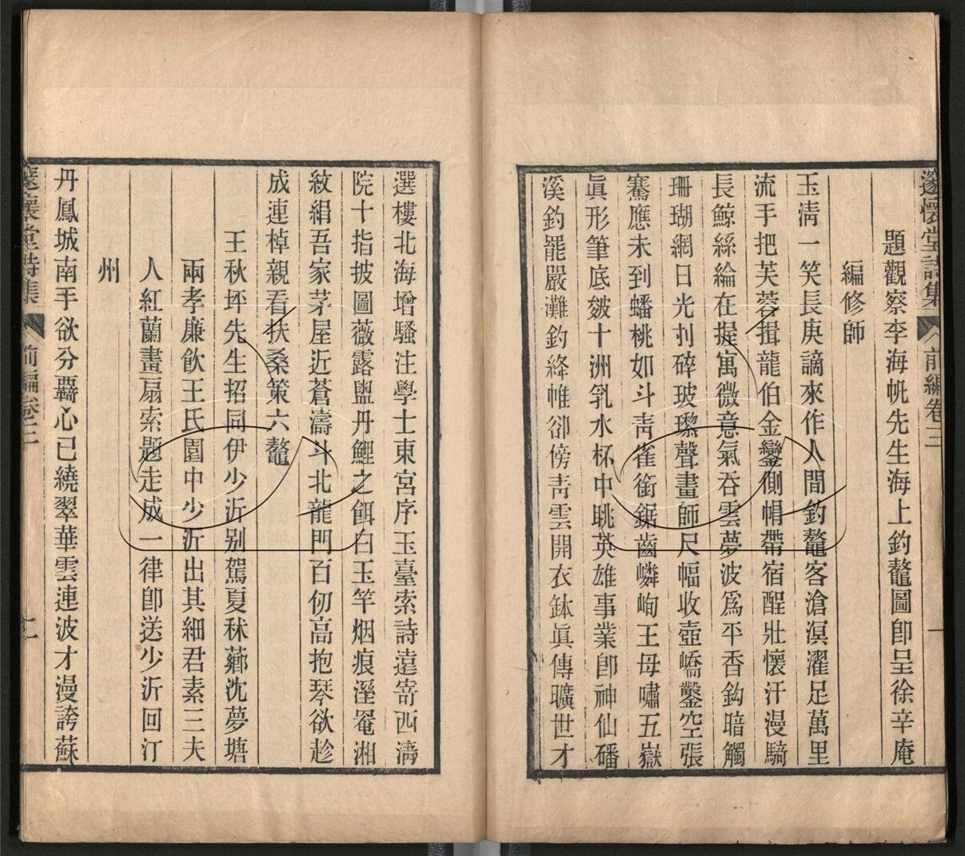 邃懷堂詩集 前編卷三 一
題觀察李海帆先生海上釣鼇圖卽呈徐辛庵
編修師
玉淸一笑長庚謫來作人間釣鼇客滄溟濯足萬里
流手把芙蓉揖龍伯金鑾側帽帶宿酲壯懷汗漫騎
長鯨絲綸在握寓微意氣吞雲夢波爲平香鈎暗觸
珊瑚網日光刋碎玻瓈聲畫師尺幅收壺嶠鑿空張
騫應未到蟠桃如斗靑雀銜鋸齒嶙峋王母嘯五嶽
眞形筆底皴十洲乳水杯中眺英雄事業卽神仙磻
溪釣罷嚴灘釣絳帷卻傍靑雲開衣鉢眞傳曠世才
選樓北海增騷注學士東宮序玉臺索詩遠寄西淸
院十指披圖薇露盥丹鯉之餌白玉竿烟痕溼罨湘
紋絹吾家茅屋近蒼濤斗北龍門百仞高抱琴欲趁
成連棹親看扶桑策六鼇
王秋坪先生招同伊少沂别駕夏秫薌沈夢塘
兩孝廉飮王氏園中少沂出其細君素三夫
人紅蘭畫扇索題走成一律卽送少沂回汀
州
丹鳳城南手欲分覊心已繞翠華雲連波才漫誇蘇
邃懷堂詩集 前編卷三